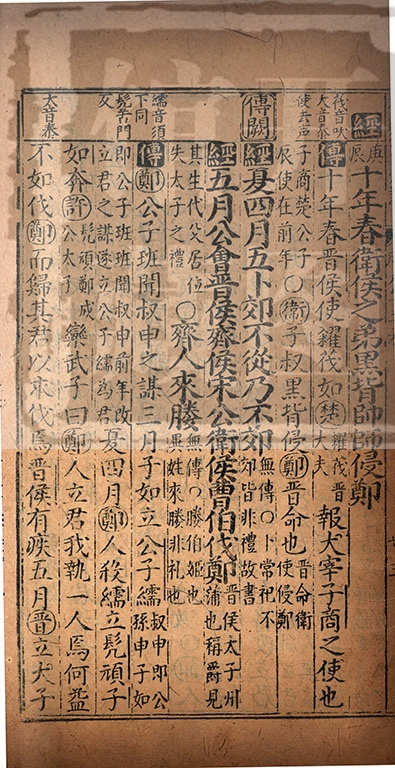 經庚辰十年春衛侯之弟黑背帥師侵鄭
茷音吠大音泰使去声
傳十年春晉侯使糴茷如楚糴茷晉大夫報大宰子商之使也
子商楚公子辰使在前年○衛子叔黑背侵鄭晉命也晉命衛使侵鄭
傳闕
經夏四月五卜郊不從乃不郊無傳○卜常祀不郊皆非禮故書
經五月公會晉侯齊侯宋公衛侯曹伯伐鄭晉侯太子州蒲也稱爵見
其生代父居位失太子之禮○齊人來媵無傳○媵伯姬也異姓來媵非礼也
繻音須下同
傳鄭公子班聞叔申之謀三月子如立公子繻叔申即公孫申子如
髠苦門反
即公子班班聞叔申前年改立君之謀遂立公子繻為君夏四月鄭人殺繻立髠頑子
如奔許髠頑鄭成公太子欒武子曰鄭人立君我執一人焉何益
大音泰
不如伐鄭而歸其君以求成焉晉侯有疾五月晉立大子